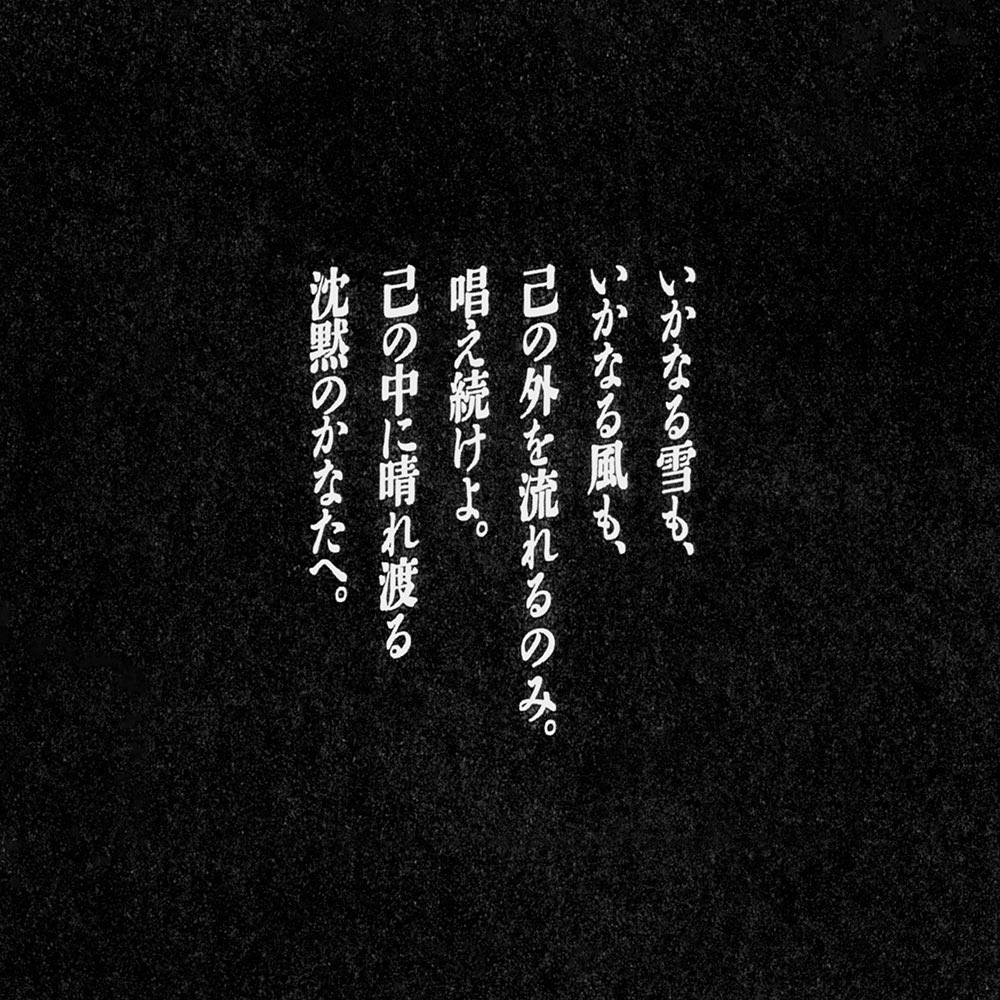 いかなる雪も、
いかなる風も、
己の外を流れるのみ。
唱え続けよ。
己の中に晴れ渡る
沈黙のかなたへ。